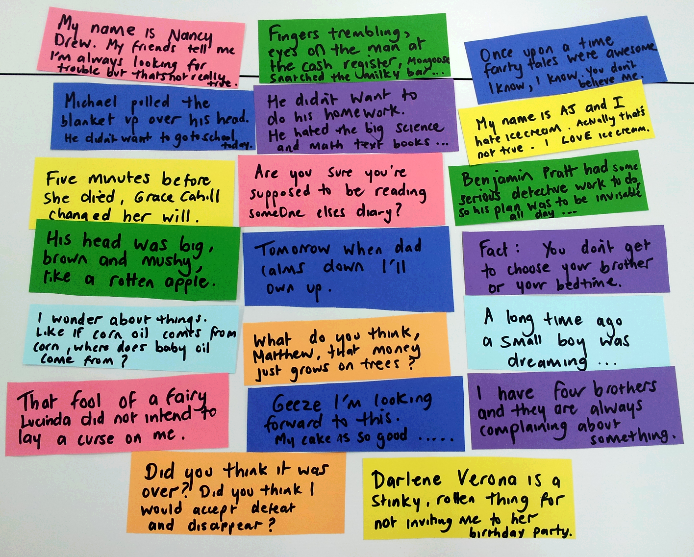 My name is Nancy
Drew. My friends tell me
I'm always looking for
trouble but that's not really
true.
Fingers trembling,
eyes on the man at
the cash register, Mongoose
snatched the milky bar...
Once upon a time
fairty tales were awesome
I know, I know. you don't
believe me.
Michael polled the
blanket up over his head.
He didn't want to go to school
today.
He didn't want to
do his homework.
He hated the big science
and math text books ...
My name is AJ and I
hate icecream. Actually that's
not true. I LOVE ice cream.
Five minutes before
she died, Grace Cahill
changed her will.
Are you sure you're
supposed to be reading
someone elses diary?
Benjamin Pratt had some
serious detective work to do,
so his plan was to be invisible
all day ...
His head was big,
brown and mushy,
like a rotten apple.
Tomorrow when dad
calms down I'll
own up.
Fact: You don't get
to choose your brother
or your bedtime.
I wonder about things.
Like if corn oil comes from
corn, where does baby oil
come from?
What do you think,
Matthew, that money
just grows on trees?
A long time ago
a small boy was
dreaming ...
That fool of a fairy
Lucinda did not intend to
lay a curse on me.
Geeze I'm looking
forward to this.
My cake is so good .....
I have four brothers
and they are always
complaining about
something.
Did you think it was
over? Did you think I
would accept defeat
and disappear?
Darlene Verona is a
stinky, rotten thing for
not inviting me to her
birthday party.